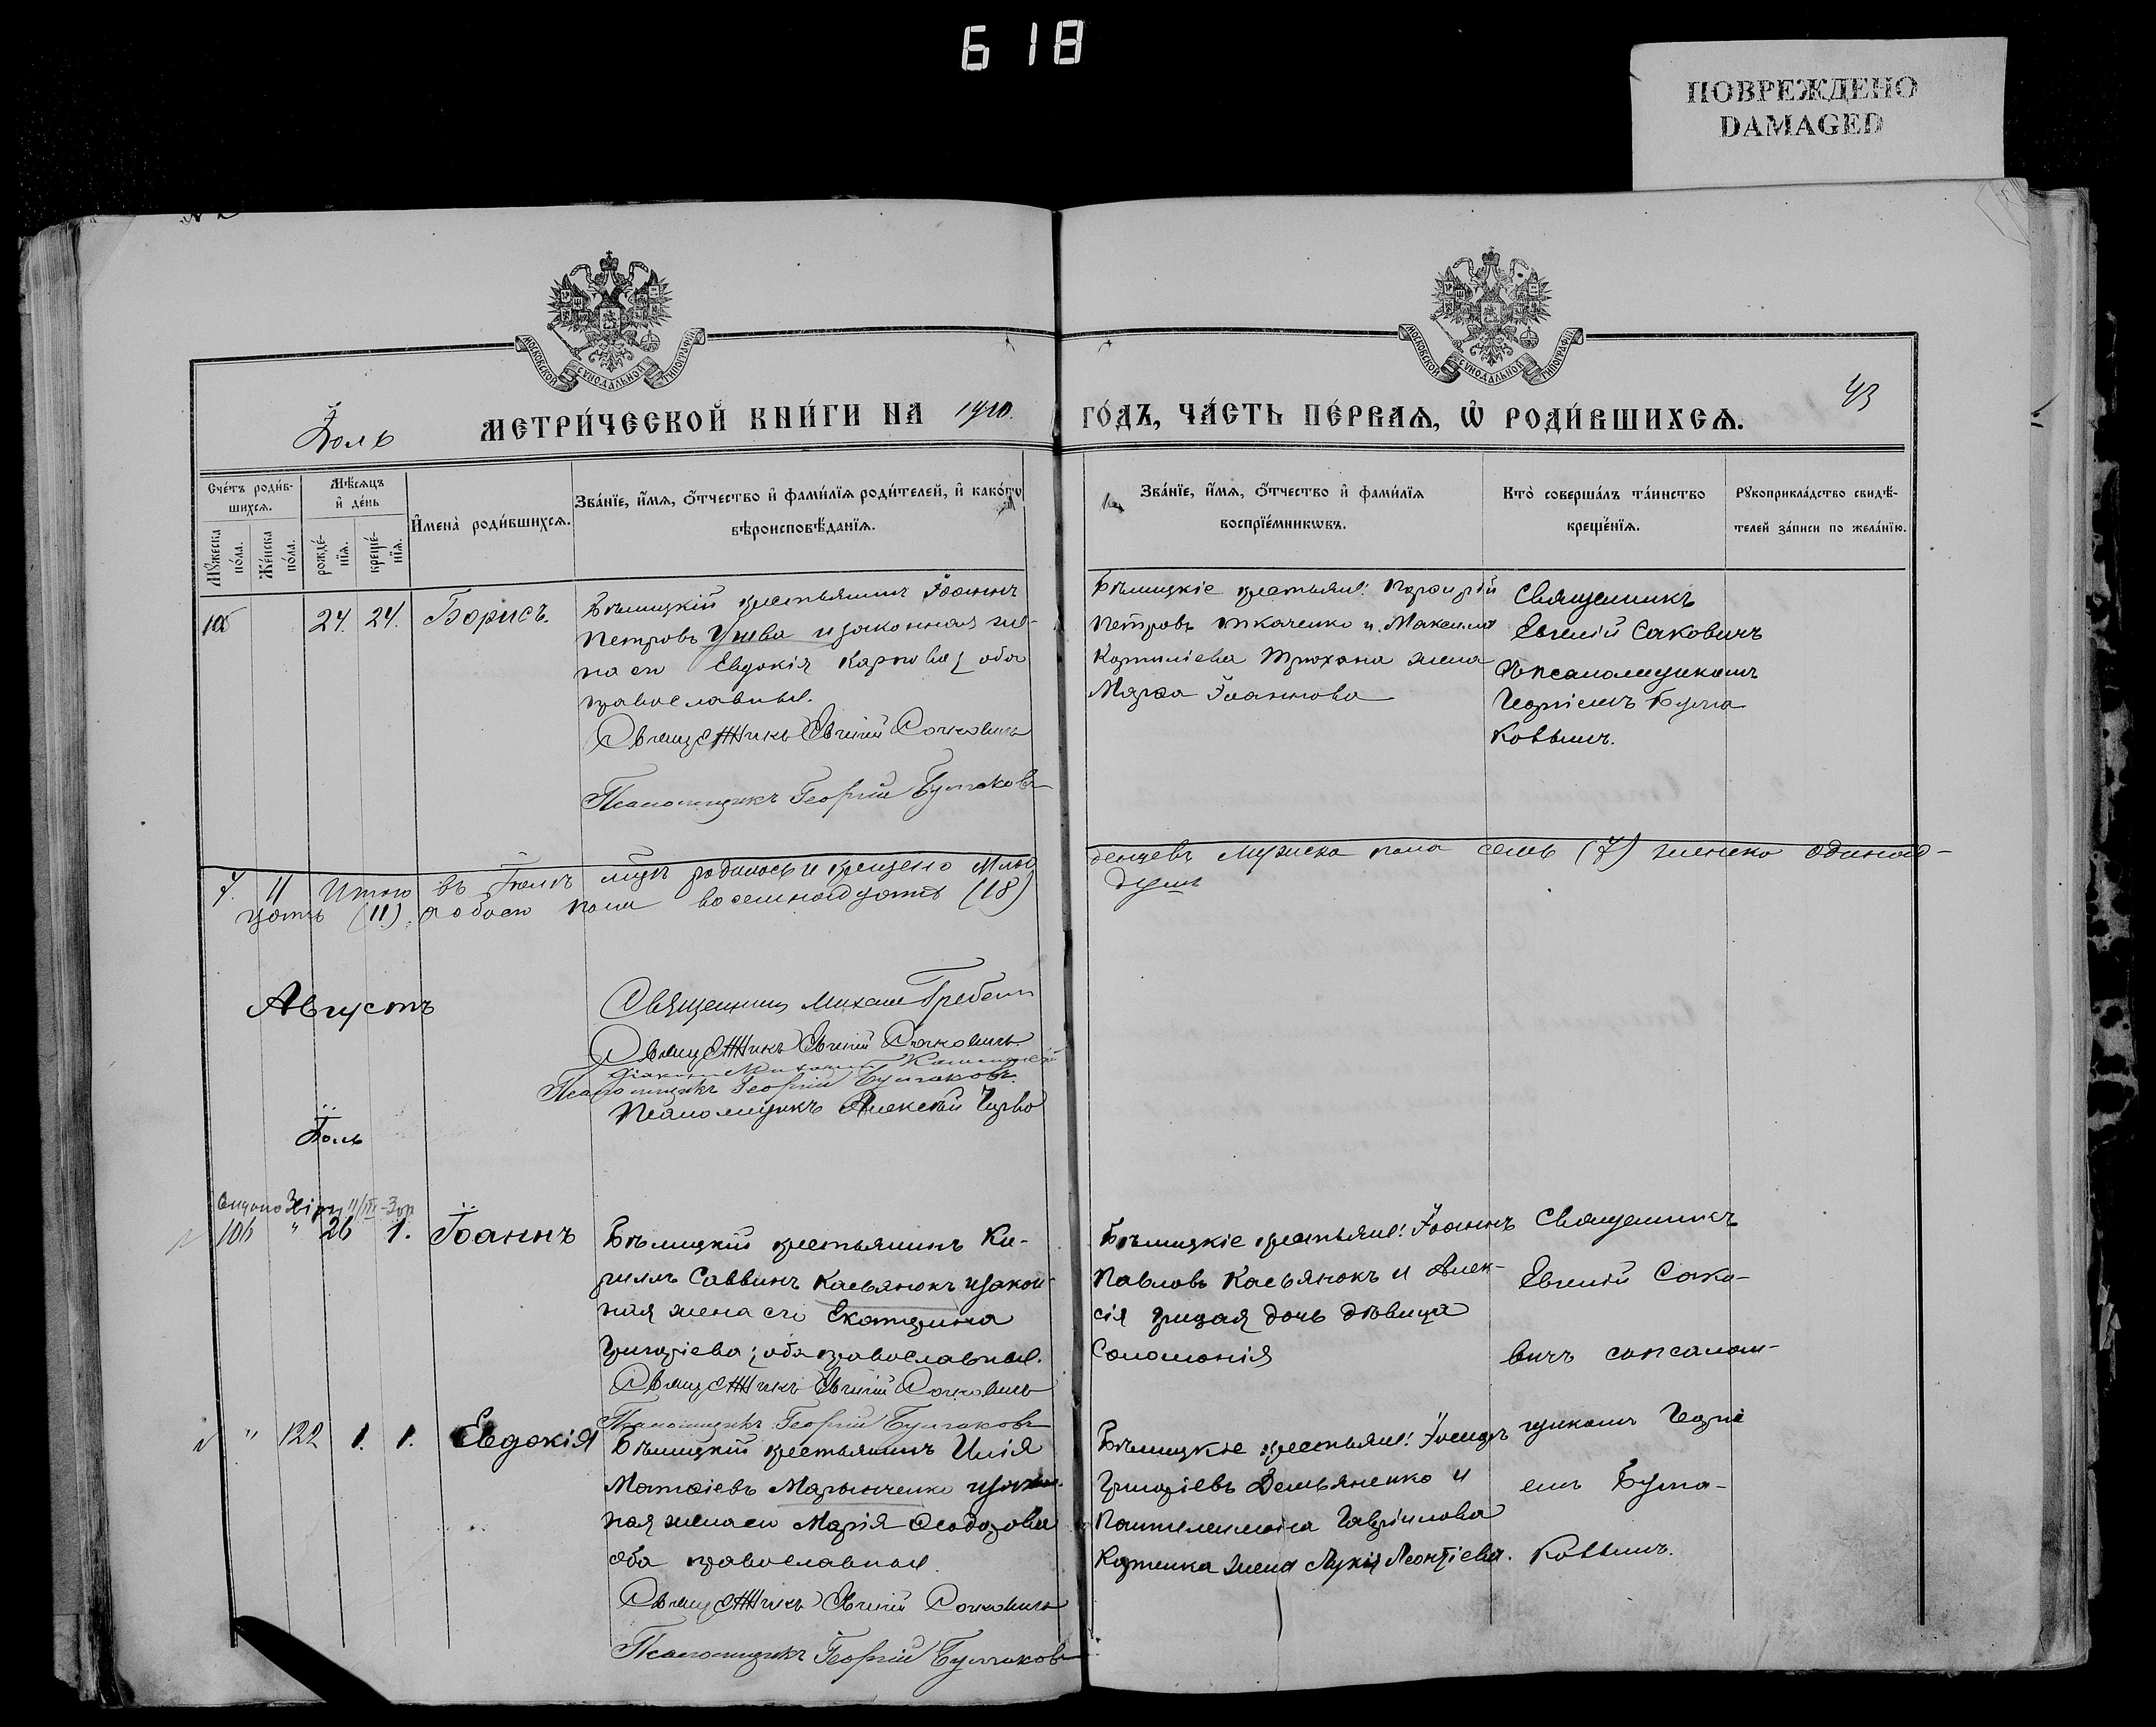 618
ПОВРЕЖДЕНО
DAMAGED
МОСКОВСКОЙ СѴНОДАЛЬНОЙ ТИПОГРАФІИ
МОСКОВСКОЙ СѴНОДАЛЬНОЙ ТИПОГРАФІИ
43
Іюль
МЕТРИ́ЧЕСКОЙ КНИ́ГИ НА 1910. ГО́ДЪ, ЧА́СТЬ ПЕ́РВАѦ, Ѡ҆ РОДИ́ВШИХСѦ.
Сче́тъ роди́в-
шихсѧ.
Мꙋ́жеска
по́ла.
Же́нска
по́ла.
Мѣ́сѧцъ
и҆ де́нь
рожде́-
нїѧ.
креще́-
нїѧ.
И҆мена̀ роди́вшихсѧ.
Зва́нїе, и҆́мѧ, ѻ҆́тчество и҆ фами́лїѧ роди́телей, и҆ како́гѡ
вѣроисповѣ́данїѧ.
Зва́нїе, и҆́мѧ, ѻ҆́тчество и҆ фами́лїѧ
воспрїе́мникѡвъ.
Кто̀ соверша́лъ та́инство
креще́нїѧ.
Рꙋкоприкла́дство свидѣ́-
телей за́писи по жела́нїю.
105 24. 24. Борисъ.
Бѣлицкій крестьянинъ Іоаннъ
Петровъ и законная же-
на его Евдокія Карпова; оба
православные.
Священникъ Евгеній Саковичъ
Псаломщикъ Георгій Булгаковъ
Бѣлицкіе крестьяне: Порфирій
Петровъ Ткаченко и Максима
Корниліева Трюхана жена
Марѳа Іоаннова
Священникъ
Евгеній Саковичъ
съ псаломщикомъ
Георгіемъ Булга
ковымъ.
7. 11 Итого въ Іюлѣ мцѣ родилось и крещено Мла
денцевъ мужска пола семь (7) женска одинад-
цать (11) а обоего пола восемнадцать (18)
душъ
Августъ
Священникъ Михаилъ
Священникъ Евгеній Саковичъ
Діаконъ
Псаломщикъ Георгій Булгаковъ
Псаломщикъ Алексѣй
Іюль
106 " 26 1. Іоаннъ
Бѣлицкій крестьянинъ Ки-
риллъ Саввинъ Касьянокъ и закон-
ная жена его Екатерина
Григоріева; оба православные.
Священникъ Евгеній Саковичъ
Псаломщикъ Георгій Булгаковъ
Бѣлицкіе крестьяне: Іоаннъ
Павловъ Касьянокъ и Алек-
сія дочь дѣвица
Соломонія
Священникъ
Евгеній Сако-
вичъ съ псалом-
" 122 1. 1. Евдокія
Бѣлицкій крестьянинъ Илія
Матѳіевъ Мартынченко и закон-
ная жена его Марія Ѳеодорова
оба православные.
Священникъ Евгеній Саковичъ
Псаломщикъ Георгій Булгаковъ
Бѣлицкіе крестьяне: Іосифъ
Григоріевъ Демьяненко и
Пантелеимона Гавріилова
жена Леонтіева.
щикомъ Георгі
емъ Булга-
ковымъ.